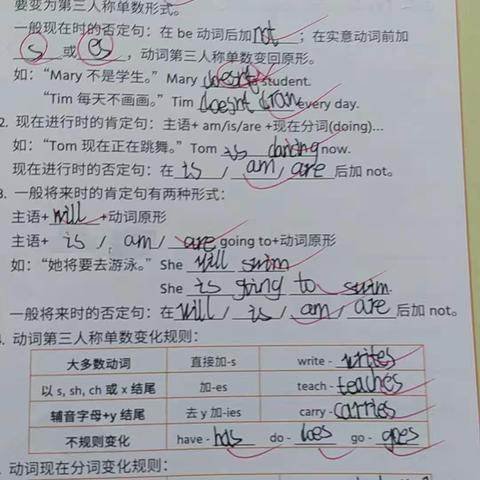 要变为第三人称单数形式。
一般现在时的否定句：在 be 动词后加 not ；在实意动词前加
s 或 es ，动词第三人称单数变回原形。
如：“Mary 不是学生。” Mary doesn't student.
“Tim 每天不画画。” Tim doesn't every day.
2. 现在进行时的肯定句：主语+ am/is/are +现在分词(doing)...
如：“Tom 现在正在跳舞。” Tom is dancing now.
现在进行时的否定句：在 is / am / are 后加 not。
3. 一般将来时的肯定句有两种形式：
主语+ will +动词原形
主语+ is / am / are going to+动词原形
如：“她将要去游泳。” She will swim
She is going to swim.
一般将来时的否定句：在 will / is / am / are 后加 not。
. 动词第三人称单数变化规则：
大多数动词 直接加-s write - writes
以 s, sh, ch 或 x 结尾 加-es teach - teaches
辅音字母+y 结尾 去 y 加-ies carry - carries
不规则变化 have - has do - does go - goes
. 动词现在分词变化规则：